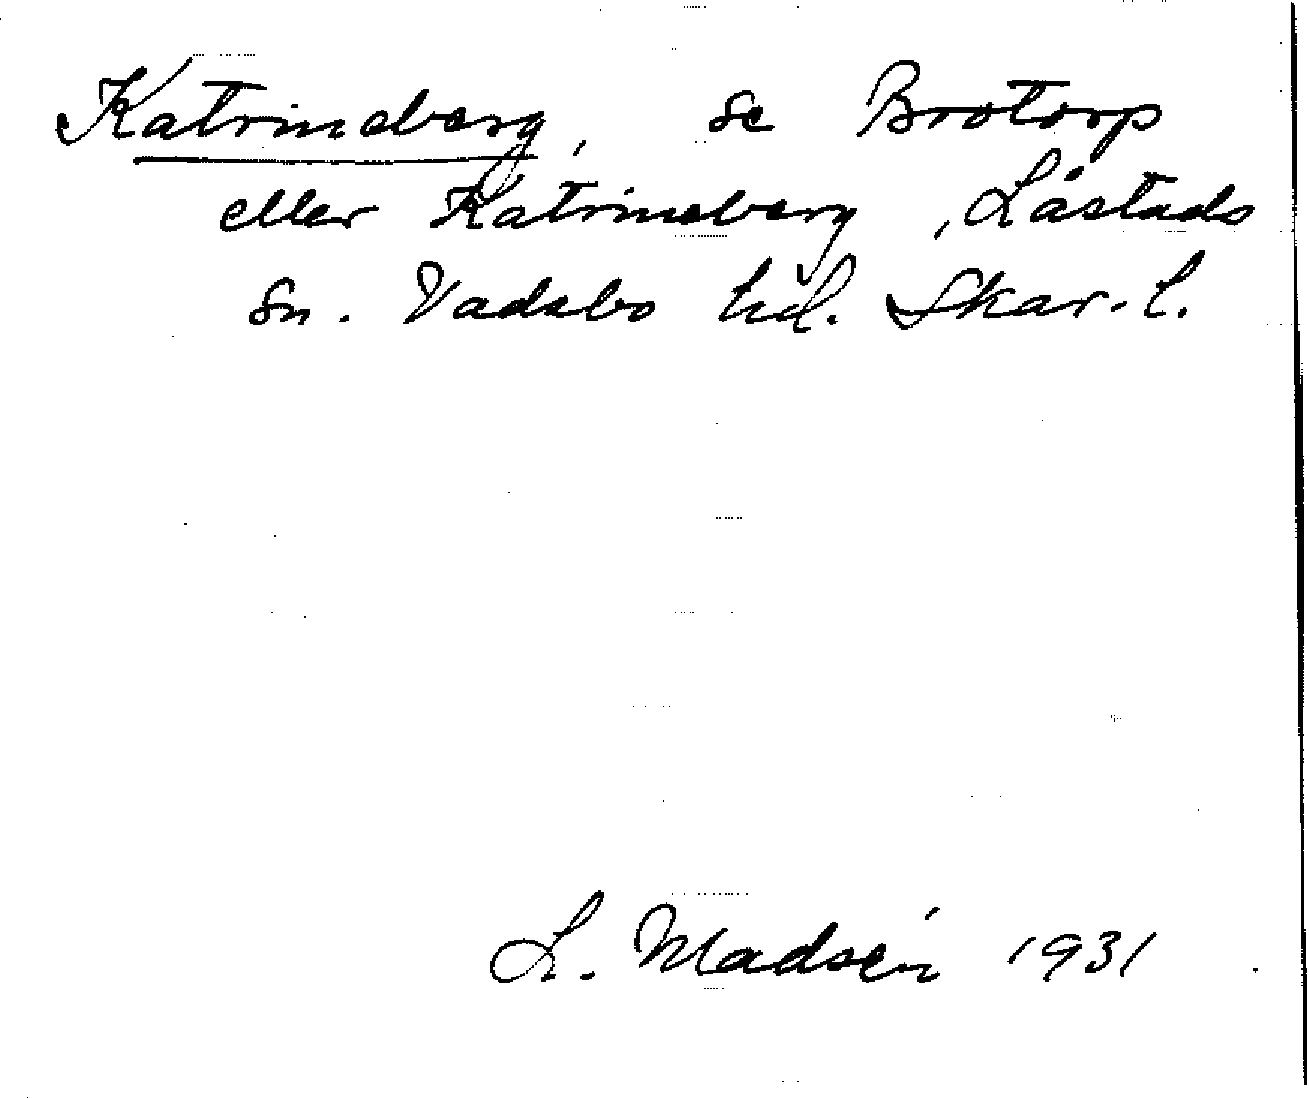 Katrineberg, se Brotorp
eller Katrineberg, Låstads
sn. Vadsbo hd. Skar. l.
L. Madsén 1931